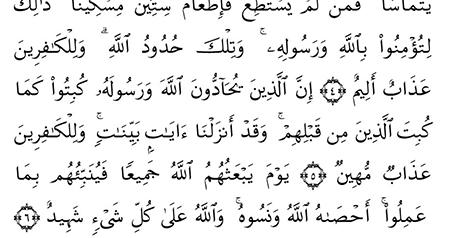 يَتَمَآسَّا ۖ فَمَن لَّمْ يَسْتَطِعْ فَإِطْعَامُ سِتِّينَ مِسْكِينًا ۚ ذَٰلِكَ
لِتُؤْمِنُوا۟ بِٱللَّهِ وَرَسُولِهِۦ ۚ وَتِلْكَ حُدُودُ ٱللَّهِ ۗ وَلِلْكَٰفِرِينَ
عَذَابٌ أَلِيمٌ ﴿٤﴾ إِنَّ ٱلَّذِينَ يُحَآدُّونَ ٱللَّهَ وَرَسُولَهُۥ كُبِتُوا۟ كَمَا
كُبِتَ ٱلَّذِينَ مِن قَبْلِهِمْ ۚ وَقَدْ أَنزَلْنَآ ءَايَٰتٍۭ بَيِّنَٰتٍ ۚ وَلِلْكَٰفِرِينَ
عَذَابٌ مُّهِينٌ ﴿٥﴾ يَوْمَ يَبْعَثُهُمُ ٱللَّهُ جَمِيعًا فَيُنَبِّئُهُم بِمَا
عَمِلُوٓا۟ ۚ أَحْصَىٰهُ ٱللَّهُ وَنَسُوهُ ۚ وَٱللَّهُ عَلَىٰ كُلِّ شَىْءٍ شَهِيدٌ ﴿٦﴾